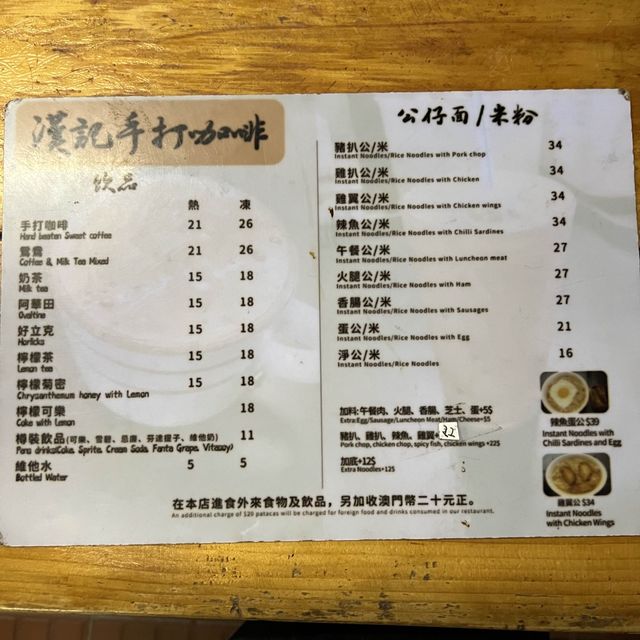 漢記手打咖啡
飲品
熱 凍
手打咖啡 21 26
Hand beaten Sweet coffee
鴛鴦 21 26
Coffee & Milk Tea Mixed
奶茶 15 18
Milk tea
阿華田 15 18
Ovaltine
好立克 15 18
Horlicks
檸檬茶 15 18
Lemon tea
檸檬菊密 15 18
Chrysanthemum honey with Lemon
檸檬可樂 18
Coke with Lemon
樽裝飲品(可樂、雪碧、忌廉、芬達提子、維他奶) 11
Pans drinks(Coke, Sprite, Cream Soda, Fanta Grape, Vitasoy)
維他水 5 5
Bottled Water
公仔面/米粉
豬扒公/米 34
Instant Noodles/Rice Noodles with Pork chop
雞扒公/米 34
Instant Noodles/Rice Noodles with Chicken
雞翼公/米 34
Instant Noodles/Rice Noodles with Chicken wings
辣魚公/米 34
Instant Noodles/Rice Noodles with Chilli Sardines
午餐公/米 27
Instant Noodles/Rice Noodles with Luncheon meat
火腿公/米 27
Instant Noodles/Rice Noodles with Ham
香腸公/米 27
Instant Noodles/Rice Noodles with Sausages
蛋公/米 21
Instant Noodles/Rice Noodles with Egg
淨公/米 16
Instant Noodles/Rice Noodles
加料:午餐肉、火腿、香腸、芝士、蛋+5$
Extra:Egg/Sausage/Luncheon Meat/Ham/Cheese+5$
豬扒、雞扒、辣魚、雞翼+22
Pork chop, chicken chop, spicy fish, chicken wings +22$
加底+12$
Extra Noodles+12$
辣魚蛋公 $39
Instant Noodles with
Chilli Sardines and Egg
雞翼公 $34
Instant Noodles
with Chicken Wings
在本店進食外來食物及飲品，另加收澳門幣二十元正。
An additional charge of $20 patacas will be charged for foreign food and drinks consumed in our restaurant.